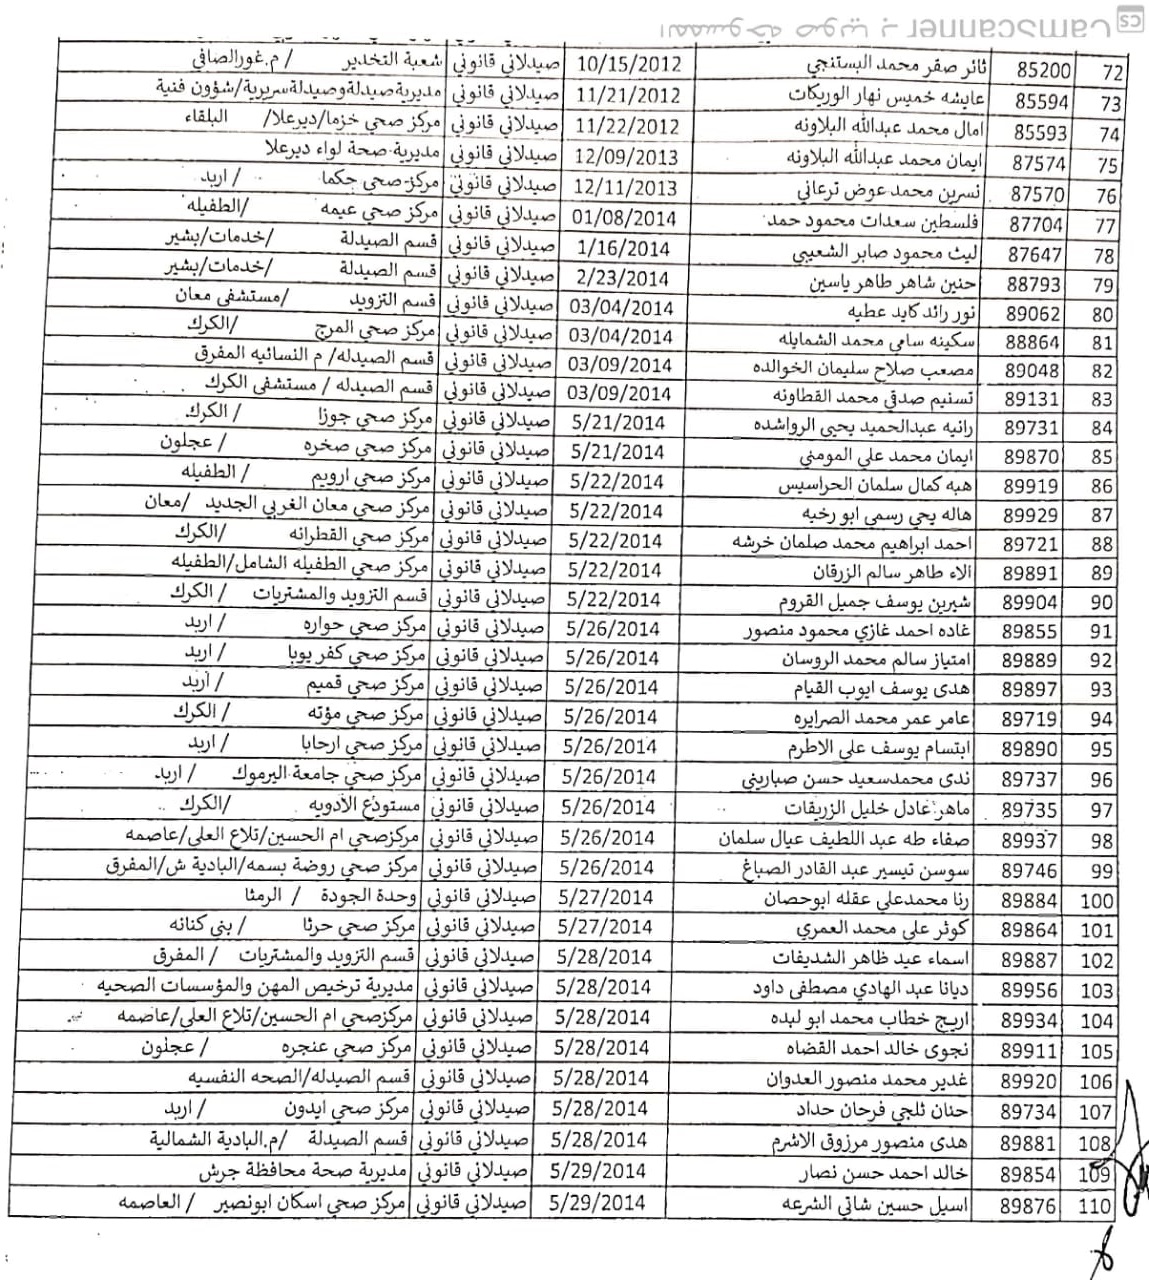 الممسوحة ضوئيا بـ CamScanner
CS
72 85200 ثائر صقر محمد البستنجي 10/15/2012 صيدلاني قانوني شعبة التخدير / م.غورالصافي
73 85594 عايشه خميس نهار الوريكات 11/21/2012 صيدلاني قانوني مديرية صيدلة وصيدلة سريرية/شؤون فنية
74 85593 امال محمد عبدالله البلاونه 11/22/2012 صيدلاني قانوني مركز صحي خزما/ديرعلا/ البلقاء
75 87574 ايمان محمد عبدالله البلاونه 12/09/2013 صيدلاني قانوني مديرية صحة لواء ديرعلا
76 87570 نسرين محمد عوض ترعاني 12/11/2013 صيدلاني قانوني مركز صحي حكما / اربد
77 87704 فلسطين سعدات محمود حمد 01/08/2014 صيدلاني قانوني مركز صحي عيمه /الطفيله
78 87647 ليث محمود صابر الشعيبي 1/16/2014 صيدلاني قانوني قسم الصيدلة /خدمات/بشير
79 88793 حنين شاهر طاهر ياسين 2/23/2014 صيدلاني قانوني قسم الصيدلة /خدمات/بشير
80 89062 نور رائد كايد عطيه 03/04/2014 صيدلاني قانوني قسم التزويد /مستشفى معان
81 88864 سكينه سامي محمد الشمايله 03/04/2014 صيدلاني قانوني مركز صحي المرج /الكرك
82 89048 مصعب صلاح سليمان الخوالده 03/09/2014 صيدلاني قانوني قسم الصيدله/ م النسائيه المفرق
83 89131 تسنيم صدقي محمد القطاونه 03/09/2014 صيدلاني قانوني قسم الصيدله / مستشفى الكرك
84 89731 رانيه عبدالحميد يحيى الرواشده 5/21/2014 صيدلاني قانوني مركز صحي جوزا / الكرك
85 89870 ايمان محمد علي المومني 5/21/2014 صيدلاني قانوني مركز صحي صخره / عجلون
86 89919 هبه كمال سلمان الحراسيس 5/22/2014 صيدلاني قانوني مركز صحي ارويم / الطفيله
87 89929 هاله يحي رسمي ابو رخيه 5/22/2014 صيدلاني قانوني مركز صحي معان الغربي الجديد /معان
88 89721 احمد ابراهيم محمد صلمان خرشه 5/22/2014 صيدلاني قانوني مركز صحي القطرانه /الكرك
89 89891 الاء طاهر سالم الزرقان 5/22/2014 صيدلاني قانوني مركز صحي الطفيله الشامل/الطفيله
90 89904 شيرين يوسف جميل القروم 5/22/2014 صيدلاني قانوني قسم التزويد والمشتريات / الكرك
91 89855 غاده احمد غازي محمود منصور 5/26/2014 صيدلاني قانوني مركز صحي حواره / اربد
92 89889 امتياز سالم محمد الروسان 5/26/2014 صيدلاني قانوني مركز صحي كفر يوبا / اربد
93 89897 هدى يوسف ايوب القيام 5/26/2014 صيدلاني قانوني مركز صحي قميم / اربد
94 89719 عامر عمر محمد الصرايره 5/26/2014 صيدلاني قانوني مركز صحي مؤته / الكرك
95 89890 ابتسام يوسف علي الاطرم 5/26/2014 صيدلاني قانوني مركز صحي ارحابا / اربد
96 89737 ندى محمدسعيد حسن صباريني 5/26/2014 صيدلاني قانوني مركز صحي جامعة اليرموك / اربد
97 89735 ماهر عادل خليل الزريقات 5/26/2014 صيدلاني قانوني مستودع الادويه /الكرك
98 89937 صفاء طه عبد اللطيف عيال سلمان 5/26/2014 صيدلاني قانوني مركزصحي ام الحسين/تلاع العلى/عاصمه
99 89746 سوسن تيسير عبد القادر الصباغ 5/26/2014 صيدلاني قانوني مركز صحي روضة بسمه/البادية ش/المفرق
100 89884 رنا محمدعلي عقله ابوحصان 5/27/2014 صيدلاني قانوني وحدة الجودة / الرمثا
101 89864 كوثر علي محمد العمري 5/27/2014 صيدلاني قانوني مركز صحي حرثا / بني كنانه
102 89887 اسماء عيد ظاهر الشديفات 5/28/2014 صيدلاني قانوني قسم التزويد والمشتريات / المفرق
103 89956 ديانا عبد الهادي مصطفى داود 5/28/2014 صيدلاني قانوني مديرية ترخيص المهن والمؤسسات الصحيه
104 89934 اريج خطاب محمد ابو لبده 5/28/2014 صيدلاني قانوني مركزصحي ام الحسين/تلاع العلى/عاصمه
105 89911 نجوى خالد احمد القضاه 5/28/2014 صيدلاني قانوني مركز صحي عنجره / عجلون
106 89920 غدير محمد منصور العدوان 5/28/2014 صيدلاني قانوني قسم الصيدله/الصحه النفسيه
107 89734 حنان ثلجي فرحان حداد 5/28/2014 صيدلاني قانوني مركز صحي ايدون / اربد
108 89881 هدى منصور مرزوق الاشرم 5/28/2014 صيدلاني قانوني قسم الصيدلة /م.البادية الشمالية
109 89854 خالد احمد حسن نصار 5/29/2014 صيدلاني قانوني مديرية صحة محافظة جرش
110 89876 اسيل حسين شاتي الشرعه 5/29/2014 صيدلاني قانوني مركز صحي اسكان ابونصير / العاصمه